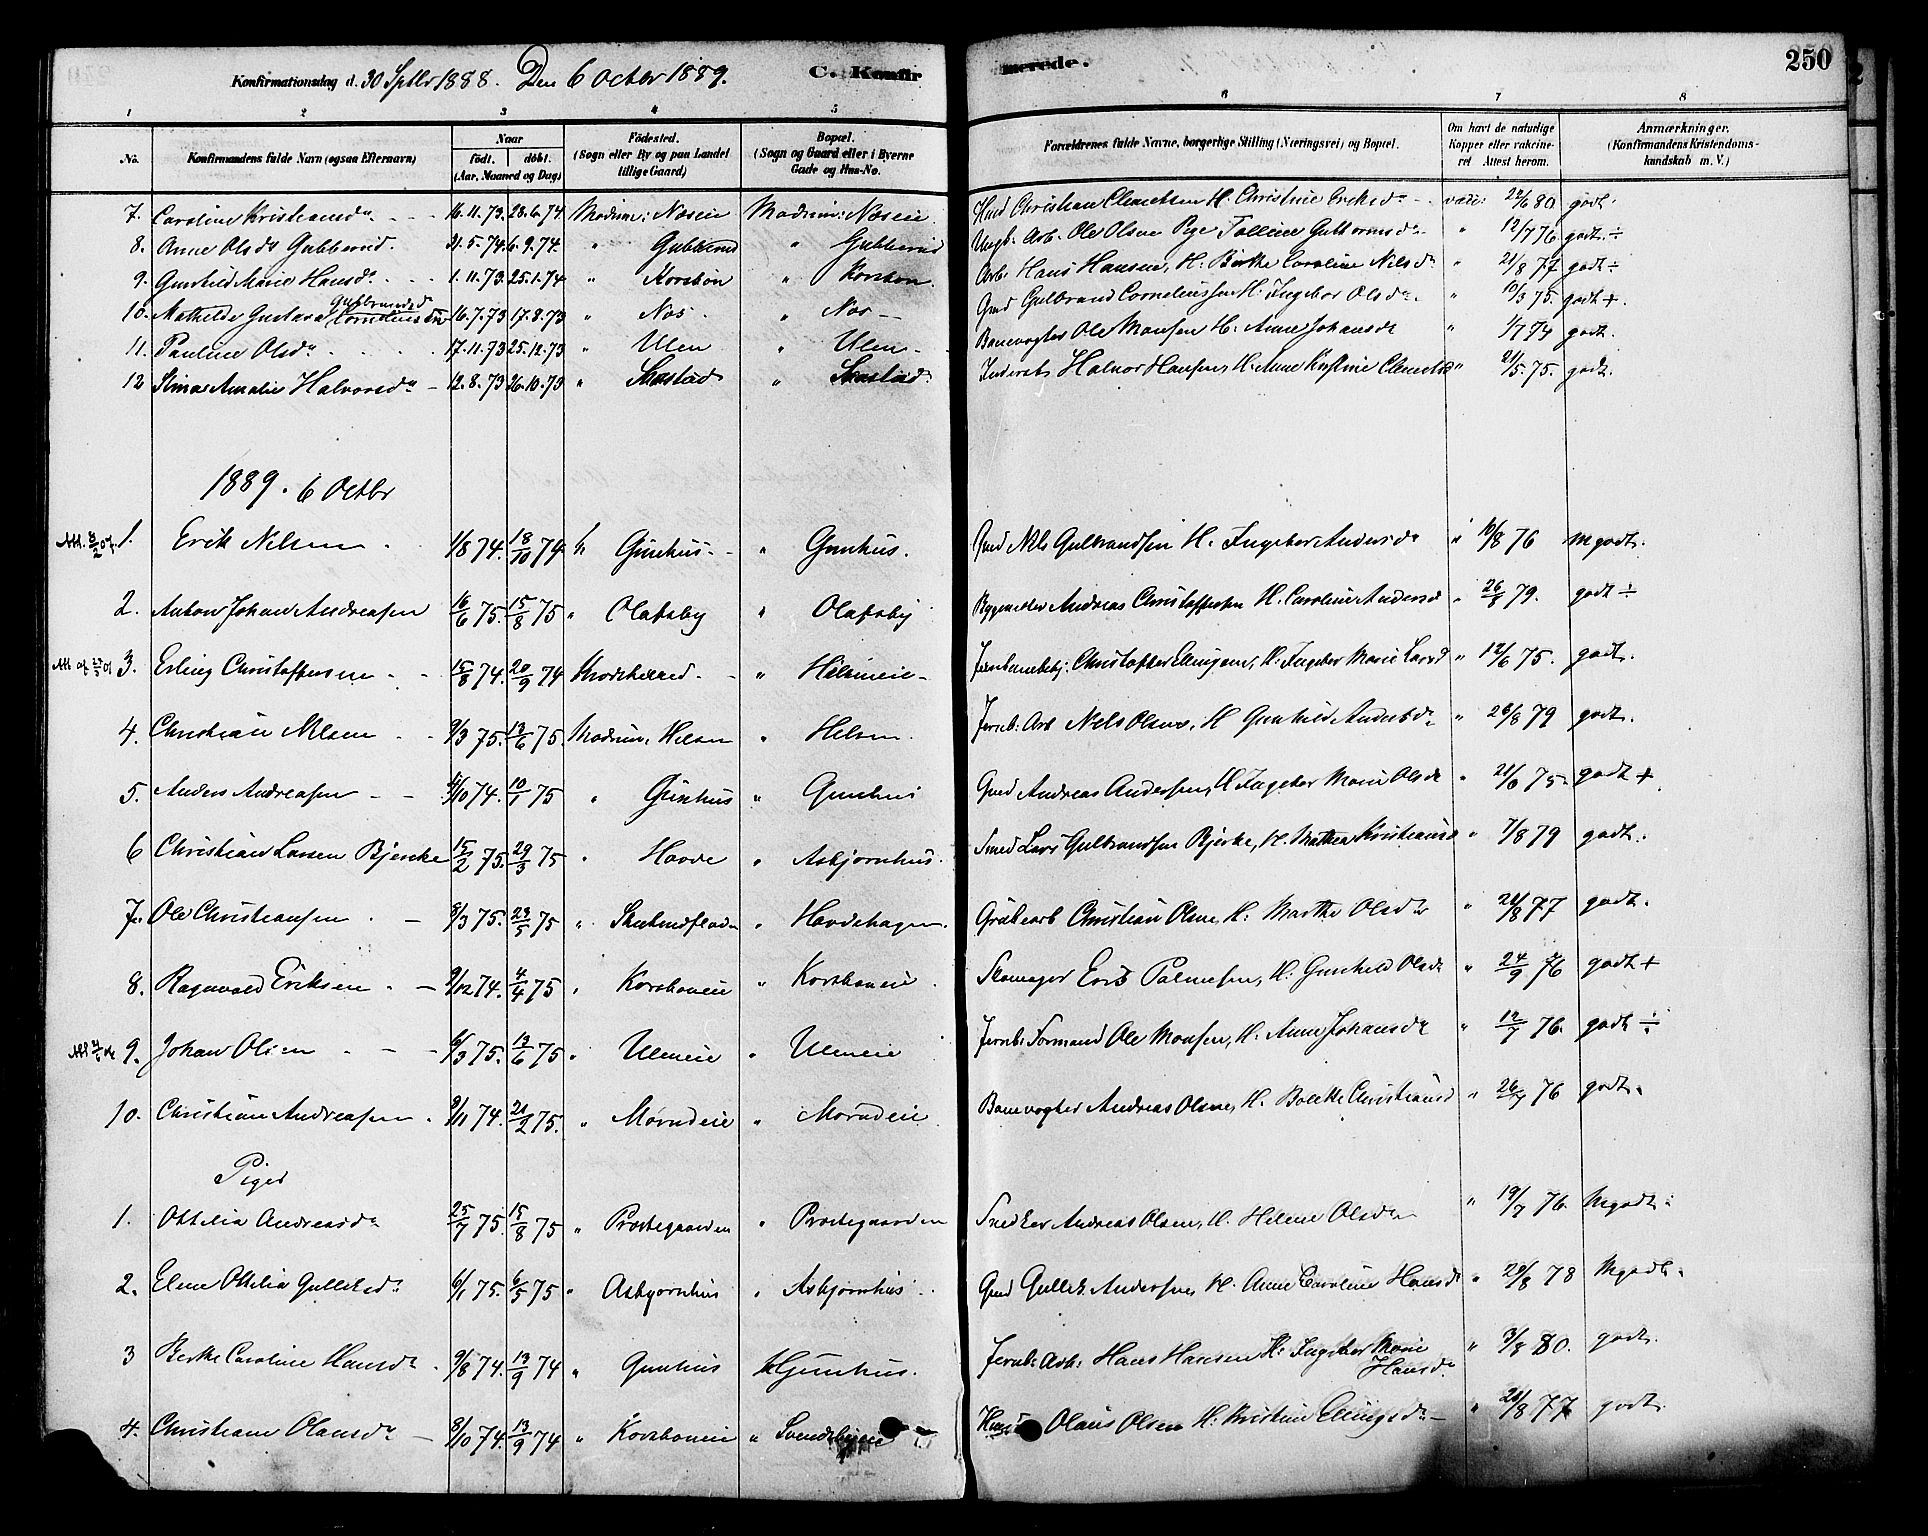 250
Konfirmationsdag d. 30 Septbr 1888. Den 6 Octbr 1889. C. Konfirmerede.
1 2 3 4 5 6 7 8
No. Konfirmandens fulde Navn (ogsaa Efternavn) Naar födt. döbt. (Aar, Maaned og Dag) Födested. (Sogn eller By og paa Landet tillige Gaard) Bopæl. (Sogn og Gaard eller i Byerne Gade og Hus-No. Forældrenes fulde Navne, borgerlige Stilling (Næringsvei) og Bopæl. Om havt de naturlige Kopper eller vakcineret Attest herom. Anmærkninger. (Konfirmandens Kristendomskundskab m. V.)
7. Caroline Kristiansdr 16.11.73 28.6.74 Modum: Næseie Modum: Næseie Christian Clemetsen H. Christine Eriksdr vacc: 22/6 80 godt.
8. Anne Olsdr Gubberud. 21.5.74. 6.9.74. " Gubberud " Gubberud Ungk. Arb. Ole Olsen Pige Talline Guttormsdr " 12/7 76 godt ÷
9. Gunhild Marie Hansdr 1.11.73. 25.1.74 " Korsbøn " Korsbøn Arb. Hans Hansen, H. Berthe Caroline Nilsdr " 21/8 77 godt ÷
10. Mathilde Gustava Cornelius Gulbrandsd 16.7.73 17.8.73 " Næs " Næs Gmd Gulbrand Corneliussen H. Ingebor Olsdr " 10/3 75. godt +.
11. Pauline Olsdr 17.11.73 25.12.73 " Ulen " Ulen Banevogter Ole Monsen H. Anne Johansdr " 1/7 74 godt.
12 Stina Amalie Halvorsdr 12.8.73 26.10.73 " Skustad " Skustad Halvor Hansen, H. Anne Kristine Clemetsd " 21/5.75. godt.
1889. 6 Octbr
1. Erik Nilsen 1/8 74. 18/10 74. " Gunhus " Gunhus. Gmd Nils Gulbrandsen H. Ingebor Andersdr " 10/8 76 M godt.
2. Anton Johan Andreasen 16/6 75. 15/8 75 " Olafsby " Olafsby Bygmester Andreas Christoffersen H. Caroline Andersd " 26/8 79. godt ÷
3. Erling Christoffersen 15/8 74. 20/9 74 Skodskelred " Helsineie Jernbanebetj: Christoffer Ellingsen, H. Ingebor Marie Larsd " 12/6 75. godt.
4. Christian Nilsen 9/3 75. 13/6 75. Modum, Helsen " Helsen. Jernb: Arb Nils Olsen, H Gunhild Andersdr " 26/8 79 godt.
5. Anders Andreasen 4/10 74. 10/1 75 " Gunhus " Gunhus Gmd Andreas Andersen, H. Ingebor Marie Olsdr " 21/8 75 godt +
6 Christian Larsen Bjerke 15/2 75. 29/3 75 " Hovde " Asbjørnhus. Smed Lars Gulbrandsen Bjerke, H. Mathea Kristiansd " 7/8 79 godt.
7. Ole Christiansen 8/3 75. 23/5 75 " " Hovdehagen. Grubearb Christian Olsen, H. Marthe Olsdr " 21/8 77 godt.
8. Ragnvald Eriksen 9/12 74. 4/4 75 " Korsboneie " Korsboneie Skomager Erik Palmesen, H. Gunhild Olsdr " 24/9 76 godt +
9. Johan Olsen 6/3 75. 13/6 75 " Uleneie " Uleneie Jernb: Formand Ole Monsen, H. Anne Johansdr " 12/7 76. godt ÷
10. Christian Andreasen 9/11 74. 21/2 75. " Mørndeie " Mørndeie Banevogter Andreas Olsen, H. Bolette Christiansd " 26/7 76 godt.
Piger
1. Ottilia Andreasdr 25/7 75. 15/8 75 " Prestegaarden " Prestegaarden Snedker Andreas Olsen, H. Helene Olsdr " 19/7 76. M godt.
2. Eline Ottilia Gulliksdr 6/1 75. 6/5 75 " Asbjørnhus " Asbjørnhus Gmd Gullik Andersen, H. Anne Caroline Hansdr " 20/8 78 M godt.
3 Berthe Caroline Hansdr 9/8 74. 13/9 74 " Gunhus " Gunhus. Jernb: Arb: Hans Hansen H. Ingebor Marie Hansdr " 3/8 80. godt.
4. Christiane Olausdr 8/10 74. 13/9 74 " Korsboneie " Svendsbyeie Olaus Olsen H. Kristine Ellingsdr " 21/8 77 godt.